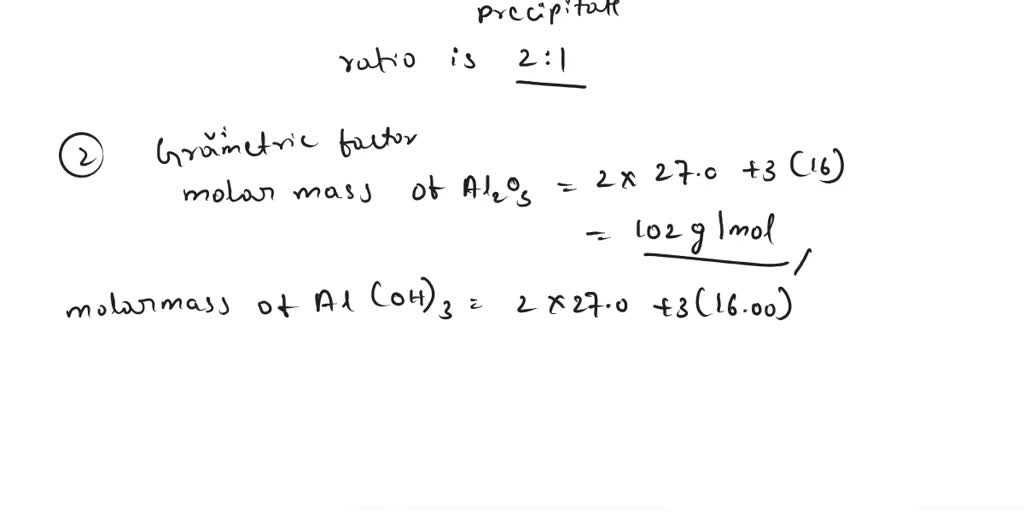 precipitate
ratio is 2:1
② Gravimetric factor
molar mass of Al₂O₃ = 2 x 27.0 +3 (16)
= 102 g/mol
molarmass of Al(OH)₃ = 2 x 27.0 +3(16.00)